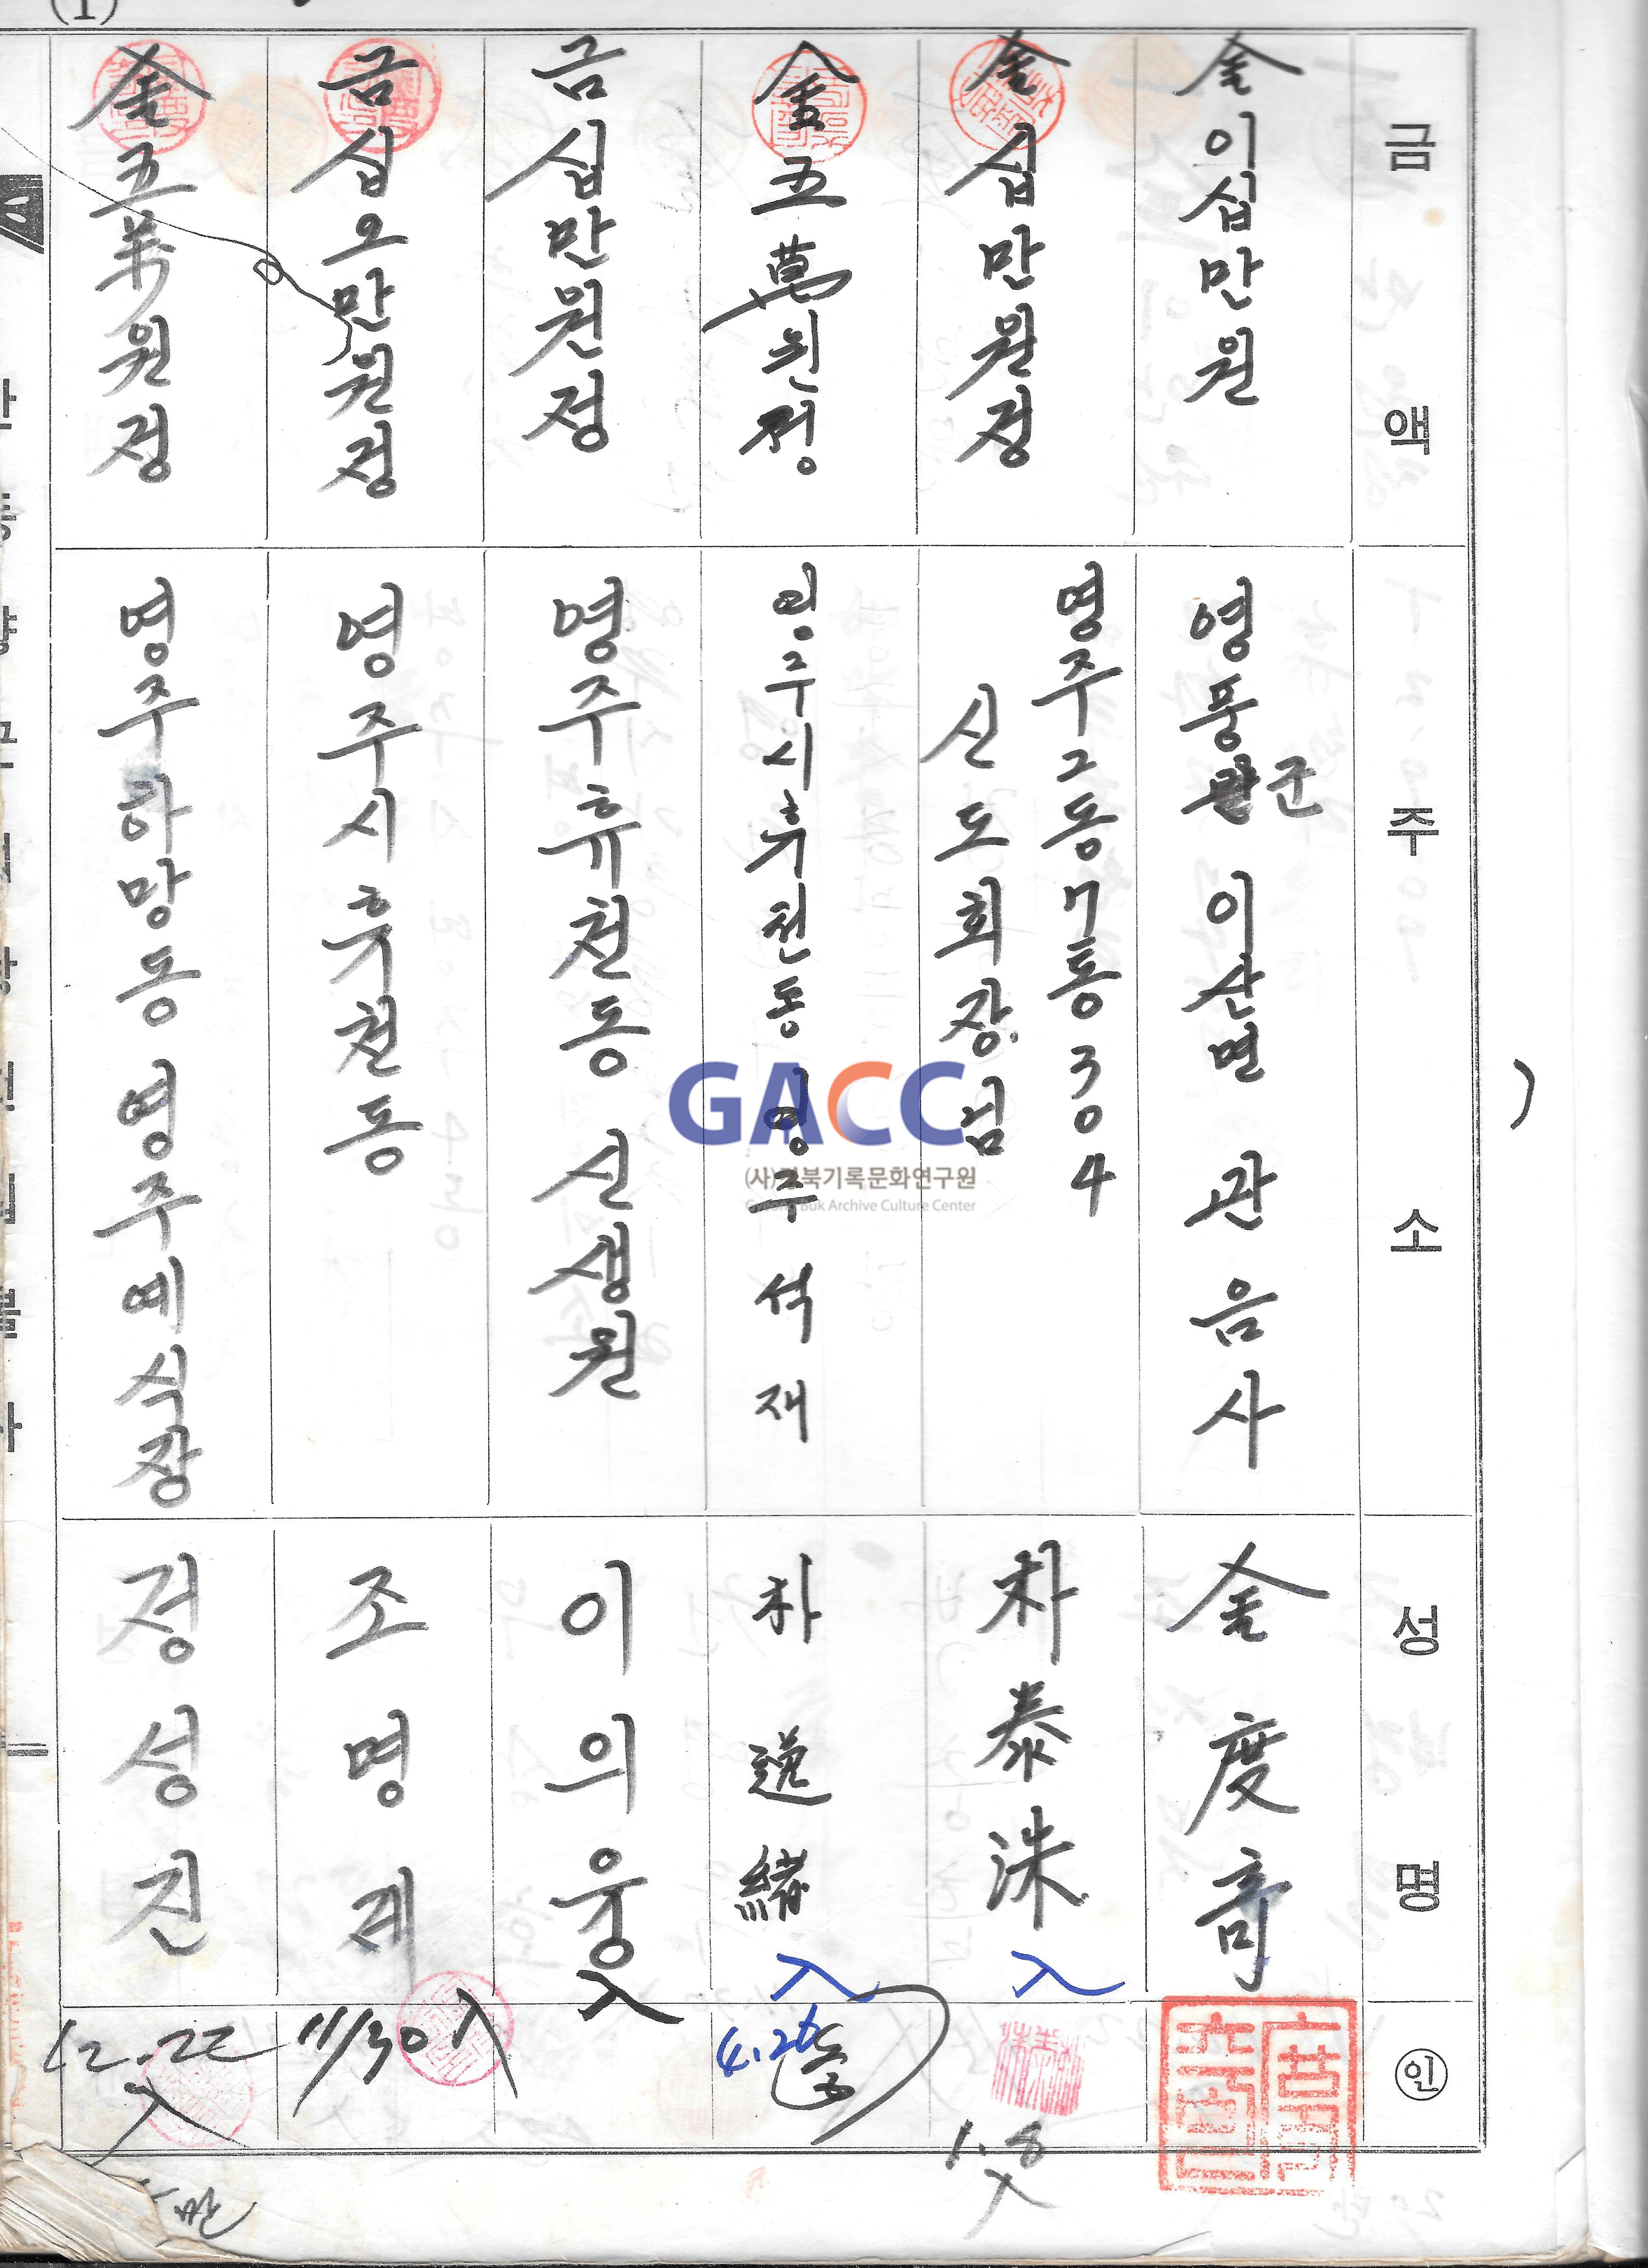 (1)
금액
주소
성명
인
金이십만원
영풍군 이산면 관음사
金度奇
金십만원정
영주2동7통3034
신도회장님
朴泰洙
入
1.8
入
金五萬원정
영주시휴천동 영주석재
朴逸緖
入
4.26
금십만원정
영주휴천동 신생원
이의웅
入
금십오만원정
영주시휴천동
조명제
11/30入
金五萬원정
영주하망동 영주예식장
정성진
12.22
入
만
GACC
(사)경북기록문화연구원
Gyeong Buk Archive Culture Center